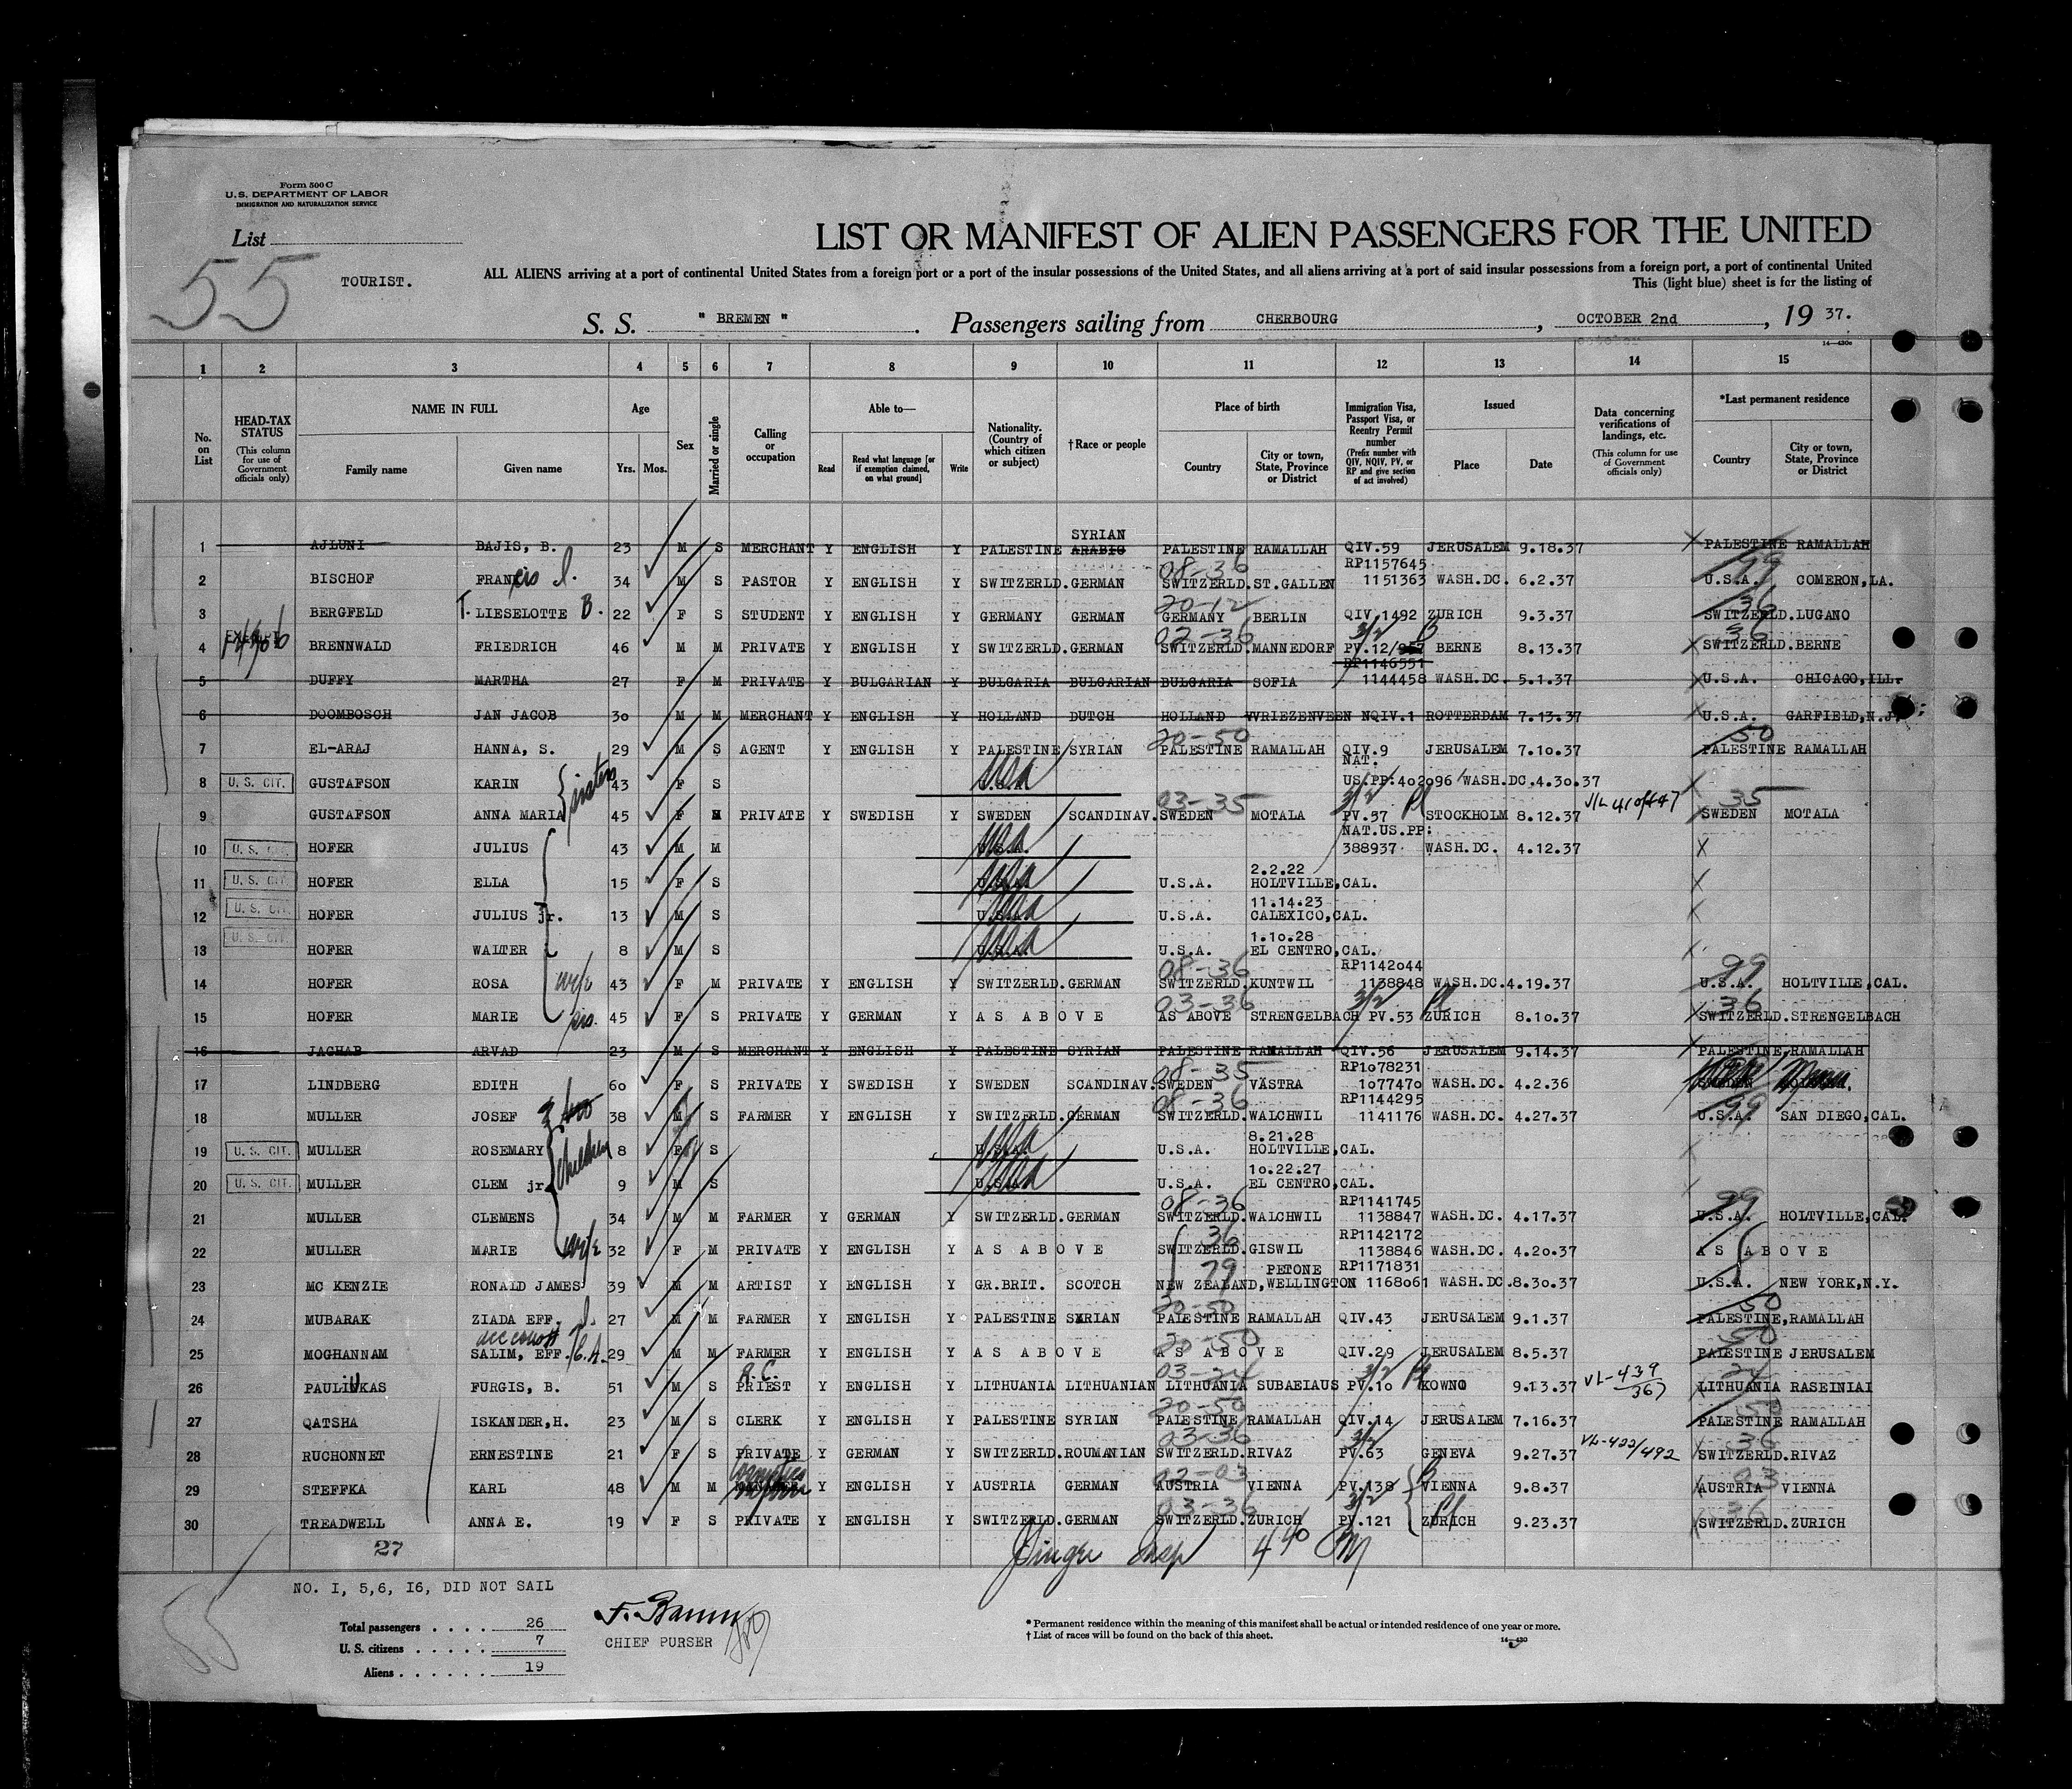 Form 500 C
U.S. DEPARTMENT OF LABOR
IMMIGRATION AND NATURALIZATION SERVICE
List
55
TOURIST.
LIST OR MANIFEST OF ALIEN PASSENGERS FOR THE UNITED
ALL ALIENS arriving at a port of continental United States from a foreign port or a port of the insular possessions of the United States, and all aliens arriving at a port of said insular possessions from a foreign port, a port of continental United
This (light blue) sheet is for the listing of
S. S. " BREMEN " . Passengers sailing from CHERBOURG , OCTOBER 2nd , 19 37.
14—430c
1 2 3 4 5 6 7 8 9 10 11 12 13 14 15
No. on List
HEAD-TAX STATUS (This column for use of Government officials only)
NAME IN FULL
Family name Given name
Age
Yrs. Mos.
Sex
Married or single
Calling or occupation
Able to—
Read Read what language [or if exemption claimed, on what ground] Write
Nationality. (Country of which citizen or subject)
†Race or people
Place of birth
Country City or town, State, Province or District
Immigration Visa, Passport Visa, or Reentry Permit number (Prefix number with QIV, NQIV, PV, or RP and give section of act involved)
Issued
Place Date
Data concerning verifications of landings, etc. (This column for use of Government officials only)
*Last permanent residence
Country City or town, State, Province or District
SYRIAN
1 AJLUNI BAJIS, B. 23 M S MERCHANT Y ENGLISH Y PALESTINE ARABIC PALESTINE RAMALLAH QIV.59 JERUSALEM 9.18.37 PALESTINE RAMALLAH
08-36 RP1157645 99
2 BISCHOF FRANcis J. 34 M S PASTOR Y ENGLISH Y SWITZERLD.GERMAN SWITZERLD.ST.GALLEN 1151363 WASH.DC. 6.2.37 U.S.A. COMERON,LA.
20-12 36
3 BERGFELD T. LIESELOTTE B. 22 F S STUDENT Y ENGLISH Y GERMANY GERMAN GERMANY BERLIN QIV.1492 ZURICH 9.3.37 SWITZERLD.LUGANO
02-36 3/2 B 36
4 BRENNWALD FRIEDRICH 46 M M PRIVATE Y ENGLISH Y SWITZERLD.GERMAN SWITZERLD.MANNEDORF PV.12/ BERNE 8.13.37 SWITZERLD.BERNE
RP1146551
5 DUFFY MARTHA 27 F M PRIVATE Y BULGARIAN Y BULGARIA BULGARIAN BULGARIA SOFIA 1144458 WASH.DC. 5.1.37 U.S.A. CHICAGO,ILL.
6 DOOMBOSCH JAN JACOB 30 M M MERCHANT Y ENGLISH Y HOLLAND DUTCH HOLLAND VRIEZENVEEN NQIV.1 ROTTERDAM 7.13.37 U.S.A. GARFIELD,N.J.
20-50 50
7 EL-ARAJ HANNA, S. 29 M S AGENT Y ENGLISH Y PALESTINE SYRIAN PALESTINE RAMALLAH QIV.9 JERUSALEM 7.10.37 PALESTINE RAMALLAH
NAT.
8 U. S. CIT. GUSTAFSON KARIN sisters 43 F S U.S.A. US.PP:402096 WASH.DC.4.30.37
03-35 3/2 35
9 GUSTAFSON ANNA MARIA 45 F M PRIVATE Y SWEDISH Y SWEDEN SCANDINAV.SWEDEN MOTALA PV.37 STOCKHOLM 8.12.37 SWEDEN MOTALA
NAT.US.PP:
10 U. S. CIT. HOFER JULIUS 43 M M U.S.A. 388937 WASH.DC. 4.12.37
2.2.22
11 U. S. CIT. HOFER ELLA 15 F S U.S.A. U.S.A. HOLTVILLE,CAL.
11.14.23
12 U. S. CIT. HOFER JULIUS Jr. 13 M S U.S.A. U.S.A. CALEXICO,CAL.
1.10.28
13 U. S. CIT. HOFER WALTER 8 M S U.S.A. U.S.A. EL CENTRO,CAL.
08-36 RP1142044 99
14 HOFER ROSA wife 43 F M PRIVATE Y ENGLISH Y SWITZERLD.GERMAN SWITZERLD.KUNTWIL 1138848 WASH.DC.4.19.37 U.S.A. HOLTVILLE,CAL.
03-36 3/2 36
15 HOFER MARIE sis. 45 F S PRIVATE Y GERMAN Y AS ABOVE AS ABOVE STRENGELBACH PV.53 ZURICH 8.10.37 SWITZERLD.STRENGELBACH
16 JAGHAB ARVAD 23 M S MERCHANT Y ENGLISH Y PALESTINE SYRIAN PALESTINE RAMALLAH QIV.56 JERUSALEM 9.14.37 PALESTINE,RAMALLAH
08-35 RP1078231
17 LINDBERG EDITH 60 F S PRIVATE Y SWEDISH Y SWEDEN SCANDINAV.SWEDEN VÄSTRA 1077470 WASH.DC. 4.2.36
08-36 RP1144295 99
18 MULLER JOSEF 38 M S FARMER Y ENGLISH Y SWITZERLD.GERMAN SWITZERLD.WALCHWIL 1141176 WASH.DC. 4.27.37 U.S.A. SAN DIEGO,CAL.
8.21.28
19 U. S. CIT. MULLER ROSEMARY children 8 F S U.S.A. U.S.A. HOLTVILLE,CAL.
10.22.27
20 U. S. CIT. MULLER CLEM jr. 9 M S U.S.A. U.S.A. EL CENTRO,CAL.
08-36 RP1141745 99
21 MULLER CLEMENS 34 M M FARMER Y GERMAN Y SWITZERLD.GERMAN SWITZERLD.WALCHWIL 1138847 WASH.DC. 4.17.37 U.S.A. HOLTVILLE,CAL.
36 RP1142172
22 MULLER MARIE wife 32 F M PRIVATE Y ENGLISH Y AS ABOVE SWITZERLD.GISWIL 1138846 WASH.DC. 4.20.37 AS ABOVE
79 PETONE RP1171831
23 MC KENZIE RONALD JAMES 39 M M ARTIST Y ENGLISH Y GR.BRIT. SCOTCH NEW ZEALAND,WELLINGTON 1168061 WASH.DC.8.30.37 U.S.A. NEW YORK,N.Y.
20-50 50
24 MUBARAK ZIADA EFF. J. 27 M M FARMER Y ENGLISH Y PALESTINE SYRIAN PALESTINE RAMALLAH QIV.43 JERUSALEM 9.1.37 PALESTINE,RAMALLAH
20-50 50
25 MOGHANNAM SALIM, EFF. 29 M M FARMER Y ENGLISH Y AS ABOVE AS ABOVE QIV.29 JERUSALEM 8.5.37 PALESTINE JERUSALEM
R.C. 03-24 3/2 VL-439/367 24
26 PAULIUKAS FURGIS, B. 51 M S PRIEST Y ENGLISH Y LITHUANIA LITHUANIAN LITHUANIA SUBAEIAUS PV.10 KOWNO 9.13.37 LITHUANIA RASEINIAI
20-50 50
27 QATSHA ISKANDER,H. 23 M S CLERK Y ENGLISH Y PALESTINE SYRIAN PALESTINE RAMALLAH QIV.14 JERUSALEM 7.16.37 PALESTINE RAMALLAH
03-36 3/2 VL-422/492 36
28 RUCHONNET ERNESTINE 21 F S PRIVATE Y GERMAN Y SWITZERLD.ROUMANIAN SWITZERLD.RIVAZ PV.63 GENEVA 9.27.37 SWITZERLD.RIVAZ
02-03 03
29 STEFFKA KARL 48 M M Y ENGLISH Y AUSTRIA GERMAN AUSTRIA VIENNA PV.138 VIENNA 9.8.37 AUSTRIA VIENNA
03-36 3/2 36
30 TREADWELL ANNA E. 19 F S PRIVATE Y ENGLISH Y SWITZERLD.GERMAN SWITZERLD.ZURICH PV.121 ZURICH 9.23.37 SWITZERLD.ZURICH
27
NO. I, 5,6, I6, DID NOT SAIL
Total passengers . . . . 26
U. S. citizens . . . . . 7
Aliens . . . . . . 19
CHIEF PURSER
* Permanent residence within the meaning of this manifest shall be actual or intended residence of one year or more.
† List of races will be found on the back of this sheet.
14—430